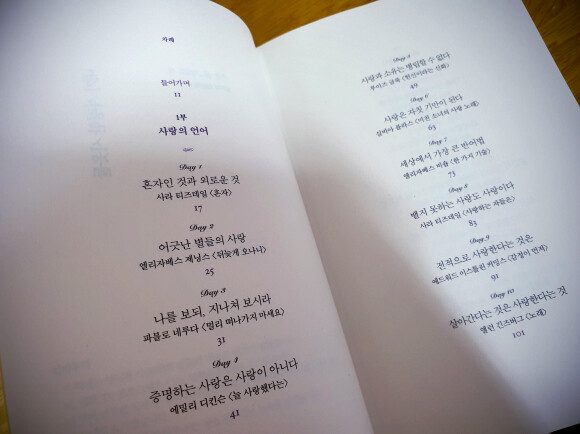 차례
들어가며
11
1부
사랑의 언어
Day 1
혼자인 것과 외로운 것
사라 티즈데일 〈혼자〉
17
Day 2
어긋난 별들의 사랑
엘리자베스 제닝스 〈뒤늦게 오나니〉
25
Day 3
나를 보되, 지나쳐 보시라
파블로 네루다 〈멀리 떠나가지 마세요〉
31
Day 4
증명하는 사랑은 사랑이 아니다
에밀리 디킨슨 〈늘 사랑했다는〉
41
Day 5
사랑과 소유는 병립할 수 없다
루이즈 글릭 〈헌신이라는 신화〉
49
Day 6
사랑은 자칫 기만이 된다
실비아 플라스 〈미친 소녀의 사랑 노래〉
63
Day 7
세상에서 가장 큰 반어법
엘리자베스 비숍 〈한 가지 기술〉
73
Day 8
뱉지 못하는 사랑도 사랑이다
사라 티즈데일 〈사랑하는 자들은〉
83
Day 9
전적으로 사랑한다는 것은
에드워드 이스틀린 커밍스 〈감정이 먼저〉
91
Day 10
살아간다는 것은 사랑한다는 것
앨런 긴즈버그 〈노래〉
101